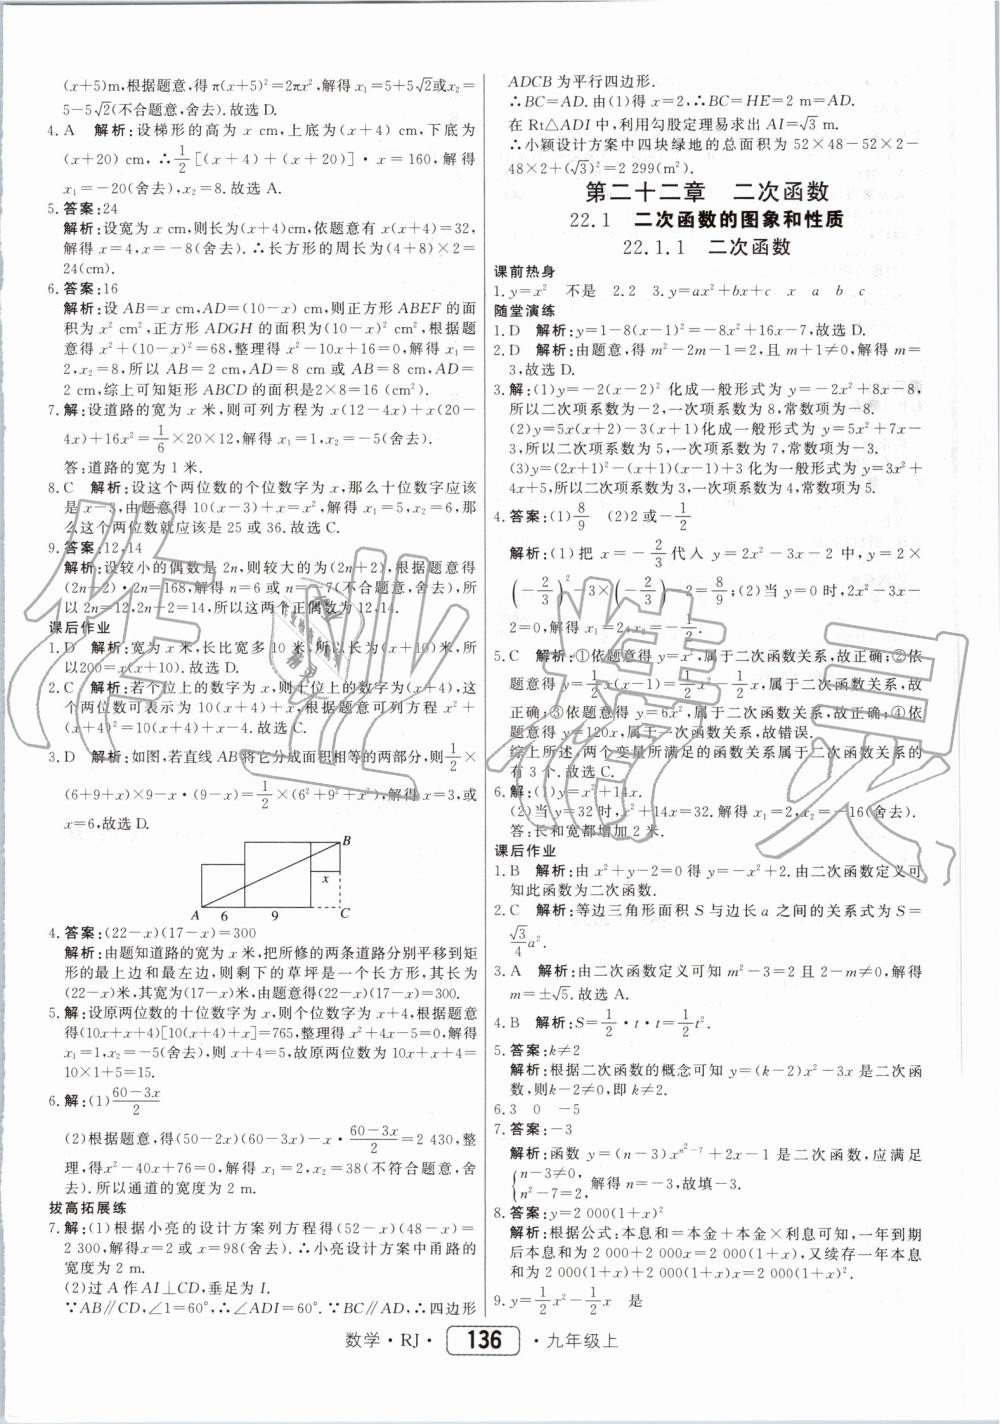 (x+5)m,根据题意,得π(x+5)²=2πx²,解得x₁=5+5√2或x₂=
5-5√2(不合题意,舍去).故选D.
4. A 解析:设梯形的高为x cm,上底为(x+4)cm,下底为
(x+20)cm,∴1/2[(x+4)+(x+20)]·x=160,解得
x₁=-20(舍去),x₂=8.故选A.
5. 答案:24
解析:设宽为x cm,则长为(x+4)cm,依题意有x(x+4)=32,
解得x=4,x=-8(舍去).∴长方形的周长为(4+8)×2=
24(cm).
6. 答案:16
解析:设AB=x cm,AD=(10-x)cm,则正方形ABEF的面
积为x² cm²,正方形ADGH的面积为(10-x)² cm²,根据题
意得x²+(10-x)²=68,整理得x²-10x+16=0,解得x₁=
2,x₂=8,所以AB=2 cm,AD=8 cm或AB=8 cm,AD=
2 cm,综上可知矩形ABCD的面积是2×8=16(cm²).
7. 解:设道路的宽为x米,则可列方程为x(12-4x)+x(20-
4x)+16x²=1/6×20×12,解得x₁=1,x₂=-5(舍去).
答:道路的宽为1米.
8. C 解析:设这个两位数的个位数字为x,那么十位数字应该
是x-3,由题意得10(x-3)+x=x²,解得x₁=5,x₂=6,那
么这个两位数就应该是25或36.故选C.
9. 答案:12,14
解析:设较小的偶数是2n,则较大的为(2n+2),根据题意得
(2n+2)·2n=168,解得n=6或n=-7(不合题意,舍去),所
以2n=12,2n+2=14,所以这两个正偶数为12,14.
课后作业
1. D 解析:宽为x米,长比宽多10米,所以长为(x+10)米,所
以200=x(x+10).故选D.
2. C 解析:若个位上的数字为x,则十位上的数字为(x+4),这
个两位数可表示为10(x+4)+x,根据题意可列方程x²+
(x+4)²=10(x+4)+x-4.故选C.
3. D 解析:如图,若直线AB将它分成面积相等的两部分,则1/2×
(6+9+x)×9-x·(9-x)=1/2×(6²+9²+x²),解得x=3,或
x=6,故选D.
B
x
A 6 9 C
4. 答案:(22-x)(17-x)=300
解析:由题知道路的宽为x米,把所修的两条道路分别平移到矩
形的最上边和最左边,则剩下的草坪是一个长方形,其长为
(22-x)米,其宽为(17-x)米,由题意得(22-x)(17-x)=300.
5. 解:设原两位数的十位数字为x,则个位数字为x+4,根据题意
得(10x+x+4)[10(x+4)+x]=765,整理得x²+4x-5=0,解得
x₁=1,x₂=-5(舍去),则x+4=5,故原两位数为10x+x+4=
10×1+5=15.
6. 解:(1)(60-3x)/2
(2)根据题意,得(50-2x)(60-3x)-x·(60-3x)/2=2 430,整
理,得x²-40x+76=0,解得x₁=2,x₂=38(不符合题意,舍
去).所以通道的宽度为2 m.
拔高拓展练
7. 解:(1)根据小亮的设计方案列方程得(52-x)(48-x)=
2 300,解得x=2或x=98(舍去).∴小亮设计方案中甬路的
宽度为2 m.
(2)过A作AI⊥CD,垂足为I.
∵AB∥CD,∠1=60°,∴∠ADI=60°.∵BC∥AD,∴四边形
ADCB为平行四边形.
∴BC=AD.由(1)得x=2,∴BC=HE=2 m=AD.
在Rt△ADI中,利用勾股定理易求出AI=√3 m.
∴小颖设计方案中四块绿地的总面积为52×48-52×2-
48×2+(√3)²=2 299(m²).
第二十二章 二次函数
22.1 二次函数的图象和性质
22.1.1 二次函数
课前热身
1. y=x² 不是 2. 2 3. y=ax²+bx+c x a b c
随堂演练
1. D 解析:y=1-8(x-1)²=-8x²+16x-7,故选D.
2. D 解析:由题意,得m²-2m-1=2,且m+1≠0,解得m=
3,故选D.
3. 解:(1)y=-2(x-2)²化成一般形式为y=-2x²+8x-8,
所以二次项系数为-2,一次项系数为8,常数项为-8.
(2)y=5x(x+2)-3(x+1)化成一般形式为y=5x²+7x-
3,所以二次项系数为5,一次项系数为7,常数项为-3.
(3)y=(2x+1)²-(x+1)(x-1)+3化为一般形式为y=3x²+
4x+5,所以二次项系数为3,一次项系数为4,常数项为5.
4. 答案:(1)8/9 (2)2或-1/2
解析:(1)把x=-2/3代入y=2x²-3x-2中,y=2×
(-2/3)²-3×(-2/3)-2=8/9;(2)当y=0时,2x²-3x-
2=0,解得x₁=2,x₂=-1/2.
5. C 解析:①依题意得y=x²,属于二次函数关系,故正确;②依
题意得y=1/2x(x-1)=1/2x²-1/2x,属于二次函数关系,故
正确;③依题意得y=6x²,属于二次函数关系,故正确;④依
题意得y=120x,属于一次函数关系,故错误.
综上所述,两个变量所满足的函数关系属于二次函数关系的
有3个.故选C.
6. 解:(1)y=x²+14x.
(2)当y=32时,x²+14x=32.解得x₁=2,x₂=-16(舍去).
答:长和宽都增加2米.
课后作业
1. B 解析:由x²+y-2=0得y=-x²+2.由二次函数定义可
知此函数为二次函数.
2. C 解析:等边三角形面积S与边长a之间的关系式为S=
√3/4a².
3. A 解析:由二次函数定义可知m²-3=2且m≠0,解得
m=±√5.故选A.
4. B 解析:S=1/2·t·t=1/2t².
5. 答案:k≠2
解析:根据二次函数的概念可知y=(k-2)x²-3x是二次函
数,则k-2≠0,即k≠2.
6. 3 0 -5
7. 答案:-3
解析:函数y=(n-3)xⁿ²⁻⁷+2x-1是二次函数,应满足
{n-3≠0, n²-7=2, 解得n=-3,故填-3.
8. 答案:y=2 000(1+x)²
解析:根据公式:本息和=本金+本金×利息可知,一年到期
后本息和为2 000+2 000x=2 000(1+x),又续存一年本息
和为2 000(1+x)+2 000(1+x)x=2 000(1+x)².
9. y=1/2x²-1/2x 是
数学·RJ· 136 ·九年级上
作业精灵